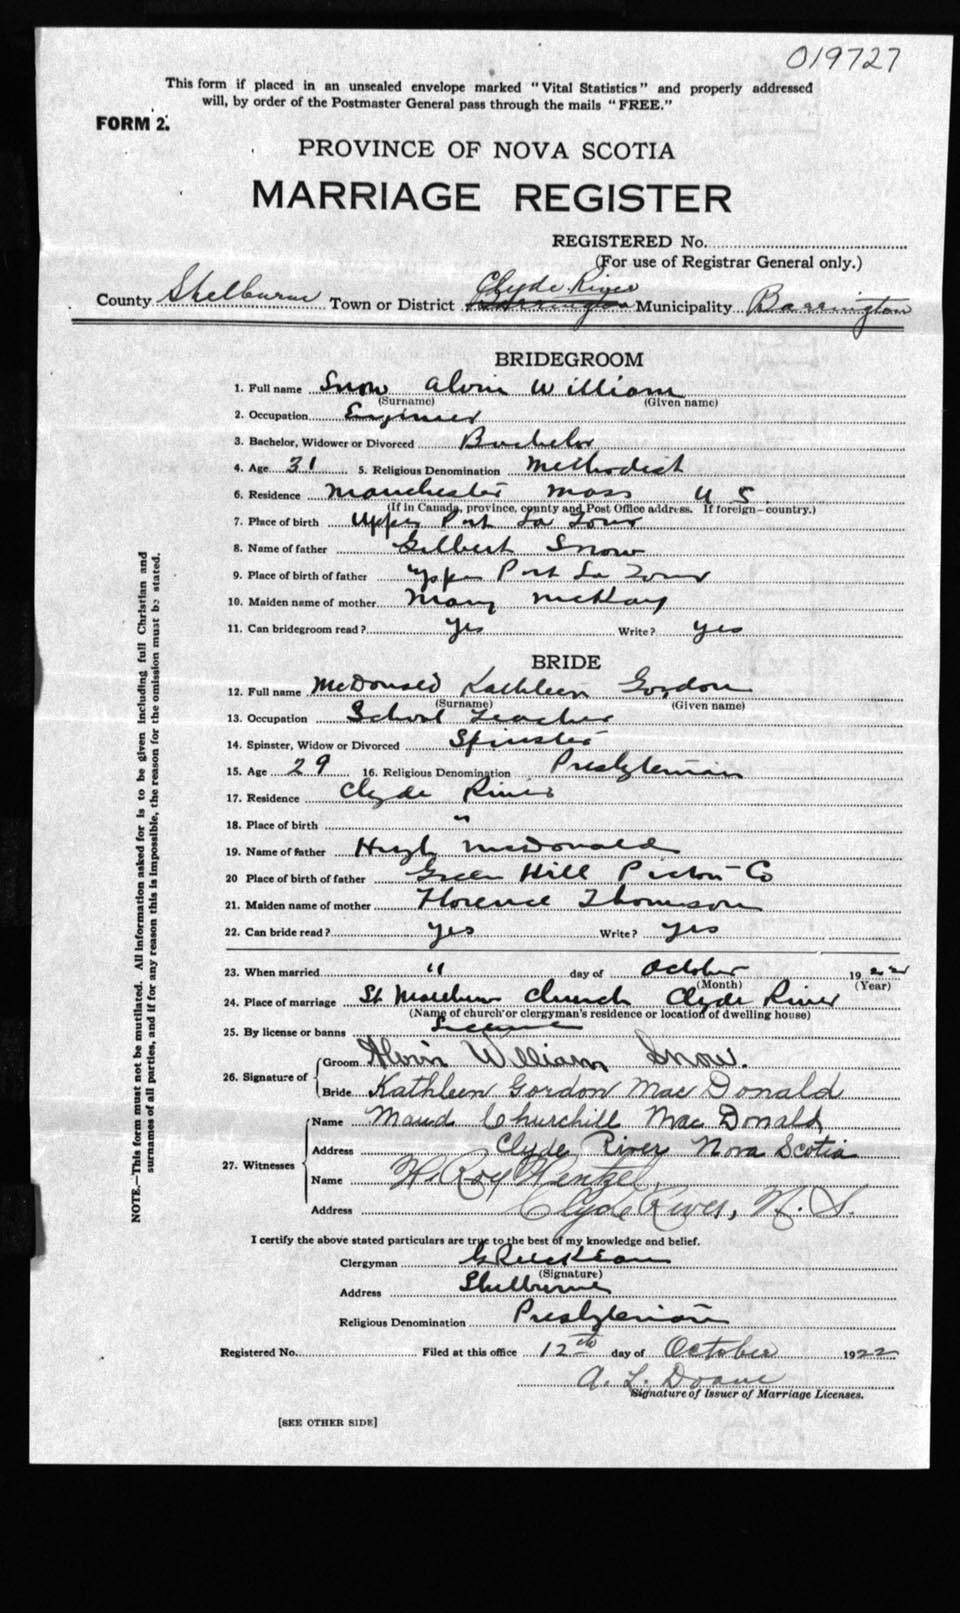 019727
This form if placed in an unsealed envelope marked "Vital Statistics" and properly addressed
will, by order of the Postmaster General pass through the mails "FREE."
FORM 2.
PROVINCE OF NOVA SCOTIA
MARRIAGE REGISTER
REGISTERED No.
(For use of Registrar General only.)
County Shelburne Town or District Clyde River Barrington Municipality Barrington
BRIDEGROOM
1. Full name Snow Alvin William
(Surname) (Given name)
2. Occupation Engineer
3. Bachelor, Widower or Divorced Bachelor
4. Age 31 5. Religious Denomination Methodist
6. Residence Manchester Mass U S.
(If in Canada, province, county and Post Office address. If foreign—country.)
7. Place of birth Upper Port La Tour
8. Name of father Gilbert Snow
9. Place of birth of father Upper Port La Tour
10. Maiden name of mother Mary McKay
11. Can bridegroom read? Yes Write? yes
BRIDE
12. Full name McDonald Kathleen Gordon
(Surname) (Given name)
13. Occupation School Teacher
14. Spinster, Widow or Divorced Spinster
15. Age 29 16. Religious Denomination Presbyterian
17. Residence Clyde River
18. Place of birth "
19. Name of father Hugh McDonald
20 Place of birth of father Green Hill Pictou Co
21. Maiden name of mother Florence Thomson
22. Can bride read? yes Write? yes
23. When married 11 day of October 1922
(Month) (Year)
24. Place of marriage St Matthews Church Clyde River
(Name of church or clergyman's residence or location of dwelling house)
25. By license or banns License
26. Signature of Groom Alvin William Snow.
Bride Kathleen Gordon MacDonald
27. Witnesses Name Maud Churchill MacDonald
Address Clyde River Nova Scotia
Name H. Roy Wentzel,
Address Clyde River, N. S.
I certify the above stated particulars are true to the best of my knowledge and belief.
Clergyman
(Signature)
Address Shelburne
Religious Denomination Presbyterian
Registered No. Filed at this office 12th day of October 1922
A. L. Doane
Signature of Issuer of Marriage Licenses.
[SEE OTHER SIDE]
NOTE.—This form must not be mutilated. All information asked for is to be given including full Christian and
surnames of all parties, and if for any reason this is impossible, the reason for the omission must be stated.